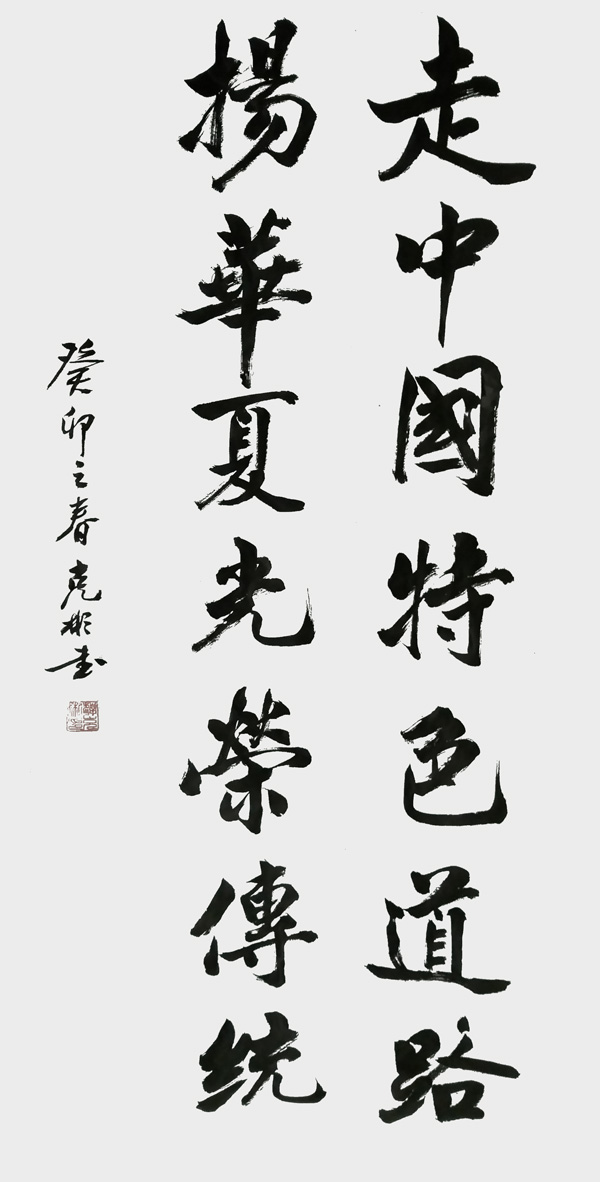 走中國特色道路
揚華夏光榮傳統
癸卯之春克彬書